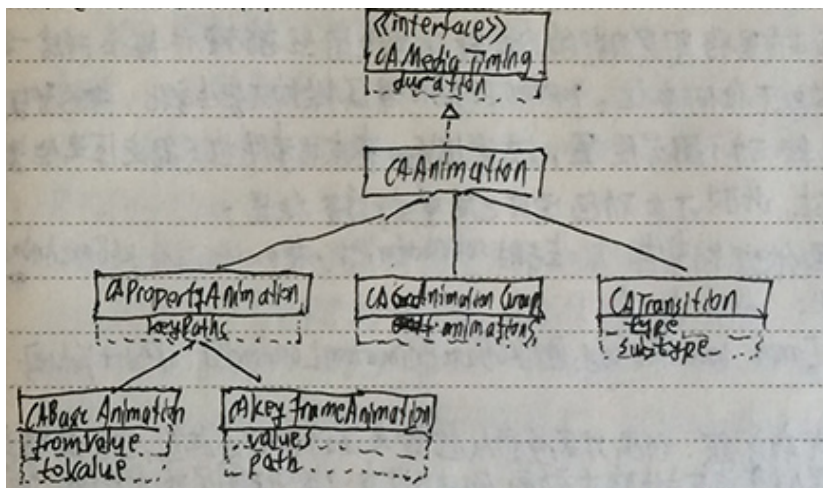 <<interface>>
CAMediaTiming
duration
CAAnimation
CAPropertyAnimation
keyPaths
CAAnimationGroup
animations
CATransition
type
subtype
CABasicAnimation
fromValue
toValue
CAKeyframeAnimation
values
path